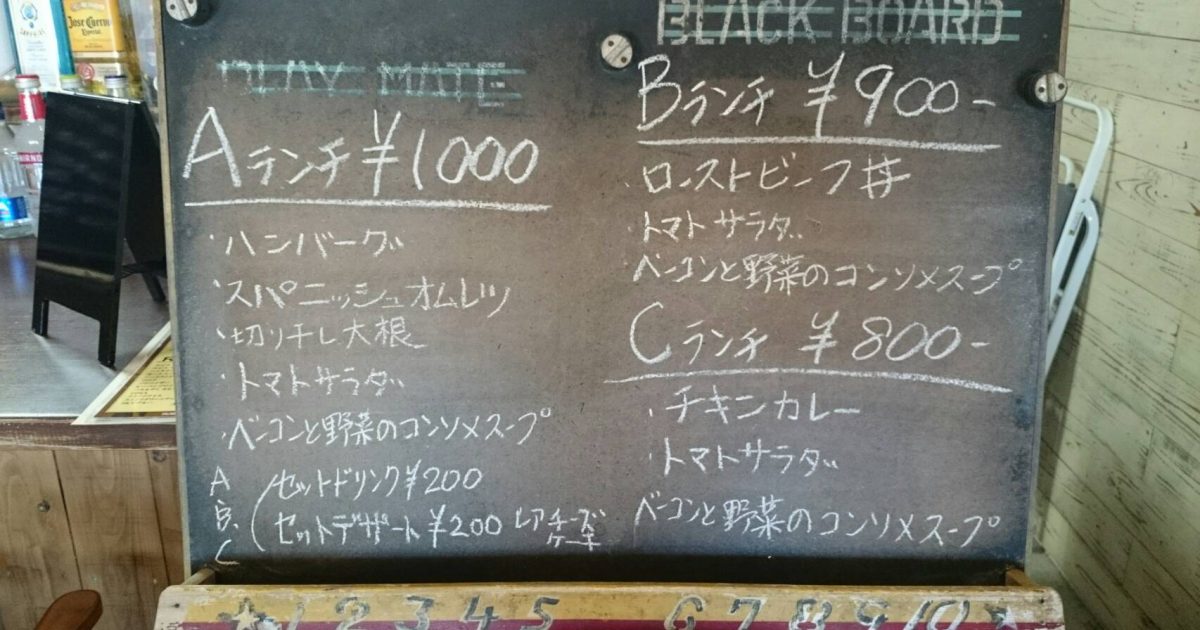 PLAY MATE
Aランチ ¥1000
・ハンバーグ
・スパニッシュオムレツ
・切り干し大根
・トマトサラダ
・ベーコンと野菜のコンソメスープ
A
B.
C
セットドリンク¥200
セットデザート¥200 レアチーズ
ケーキ
BLACK BOARD
Bランチ ¥900-
・ローストビーフ丼
・トマトサラダ
・ベーコンと野菜のコンソメスープ
Cランチ ¥800-
・チキンカレー
・トマトサラダ
・ベーコンと野菜のコンソメスープ
★12345 678910★
Jose Cuervo
Especial